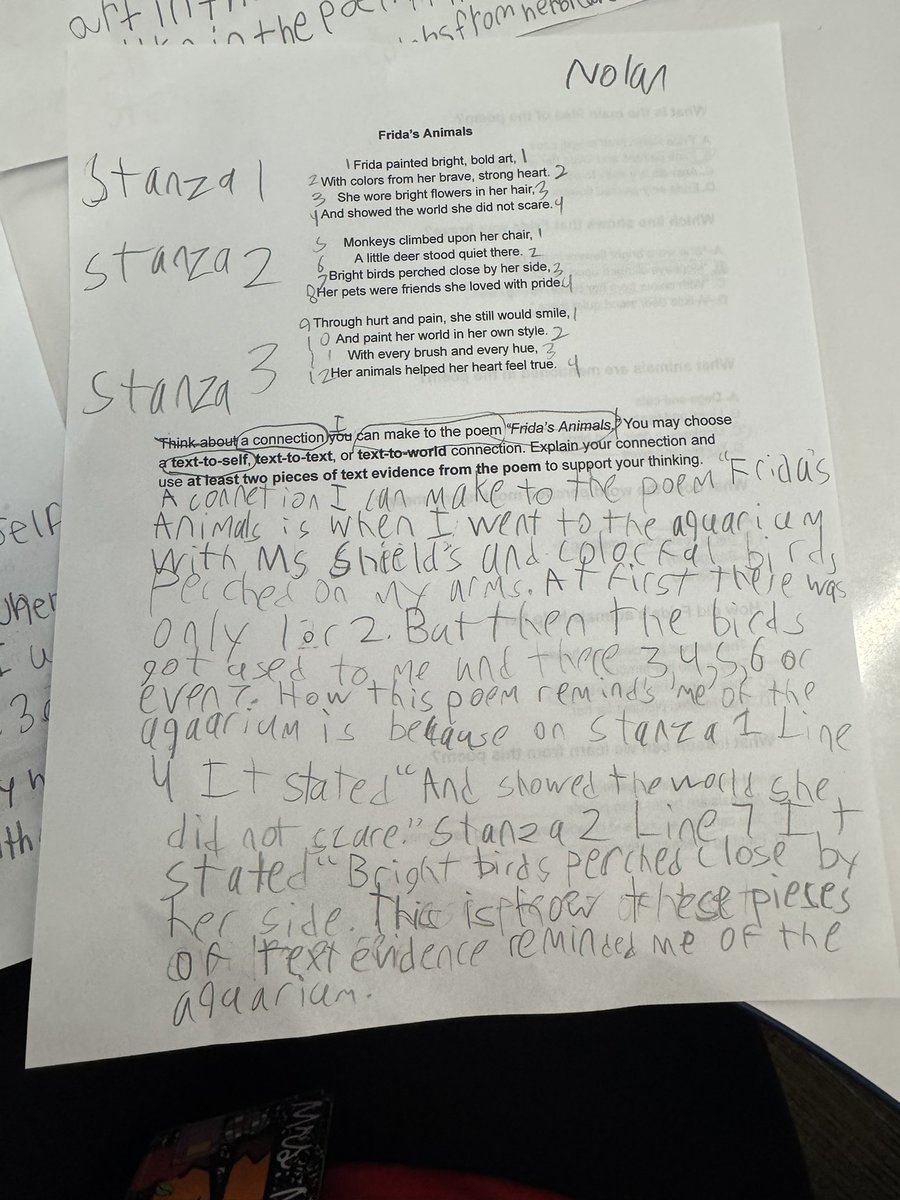 art in th
in the poe
hs from her
Nolan
Frida's Animals
Stanza 1
1 Frida painted bright, bold art, 1
2 With colors from her brave, strong heart. 2
3 She wore bright flowers in her hair, 3
4 And showed the world she did not scare. 4
Stanza 2
5 Monkeys climbed upon her chair, 1
6 A little deer stood quiet there. 2
7 Bright birds perched close by her side, 3
8 Her pets were friends she loved with pride. 4
Stanza 3
9 Through hurt and pain, she still would smile, 1
10 And paint her world in her own style. 2
11 With every brush and every hue, 3
12 Her animals helped her heart feel true. 4
I
Think about a connection you can make to the poem "Frida's Animals." You may choose
a text-to-self, text-to-text, or text-to-world connection. Explain your connection and
use at least two pieces of text evidence from the poem to support your thinking.
A connetion I can make to the poem "Frida's
Animals is when I went to the aquarium
with Ms Shield's and colorfal birds
perched on my arms. At first there was
only 1 or 2. But then the birds
got used to me and there 3,4,5,6 or
even 7. How this poem remind's me of the
aquarium is because on stanza 1 Line
4 It stated "And showed the world she
did not scare." Stanza 2 Line 7 It
stated "Bright birds perched close by
her side. This is how these pieses
of text evidence reminded me of the
aquarium.
self
3